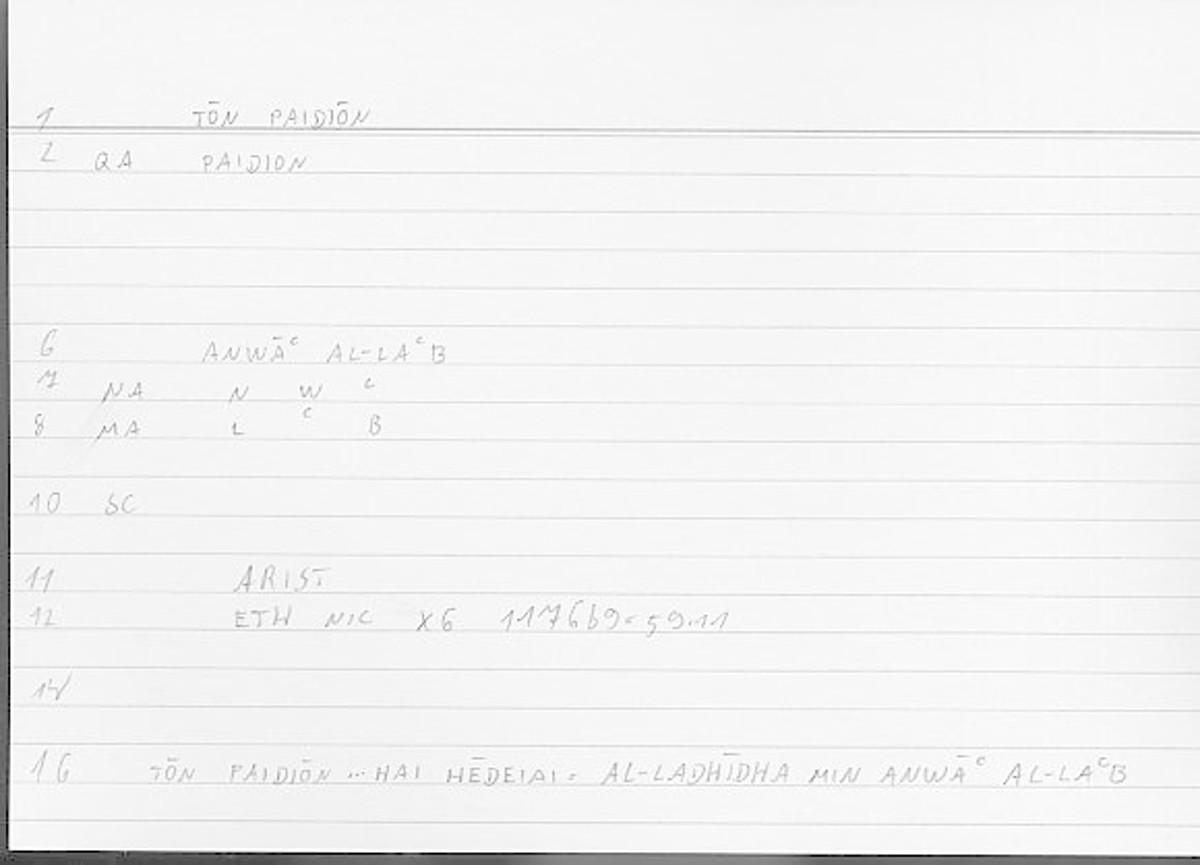 1 TŌN PAIDIŌN
2 QA PAIDION
6 ANWĀᶜ AL-LAᶜB
7 NA N W ᶜ
8 MA L ᶜ B
10 SC
11 ARIST
12 ETH NIC X6 1176b9 = 59.11
14
16 TŌN PAIDIŌN ... HAI HĒDEIAI = AL-LADHĪDHA MIN ANWĀᶜ AL-LAᶜB